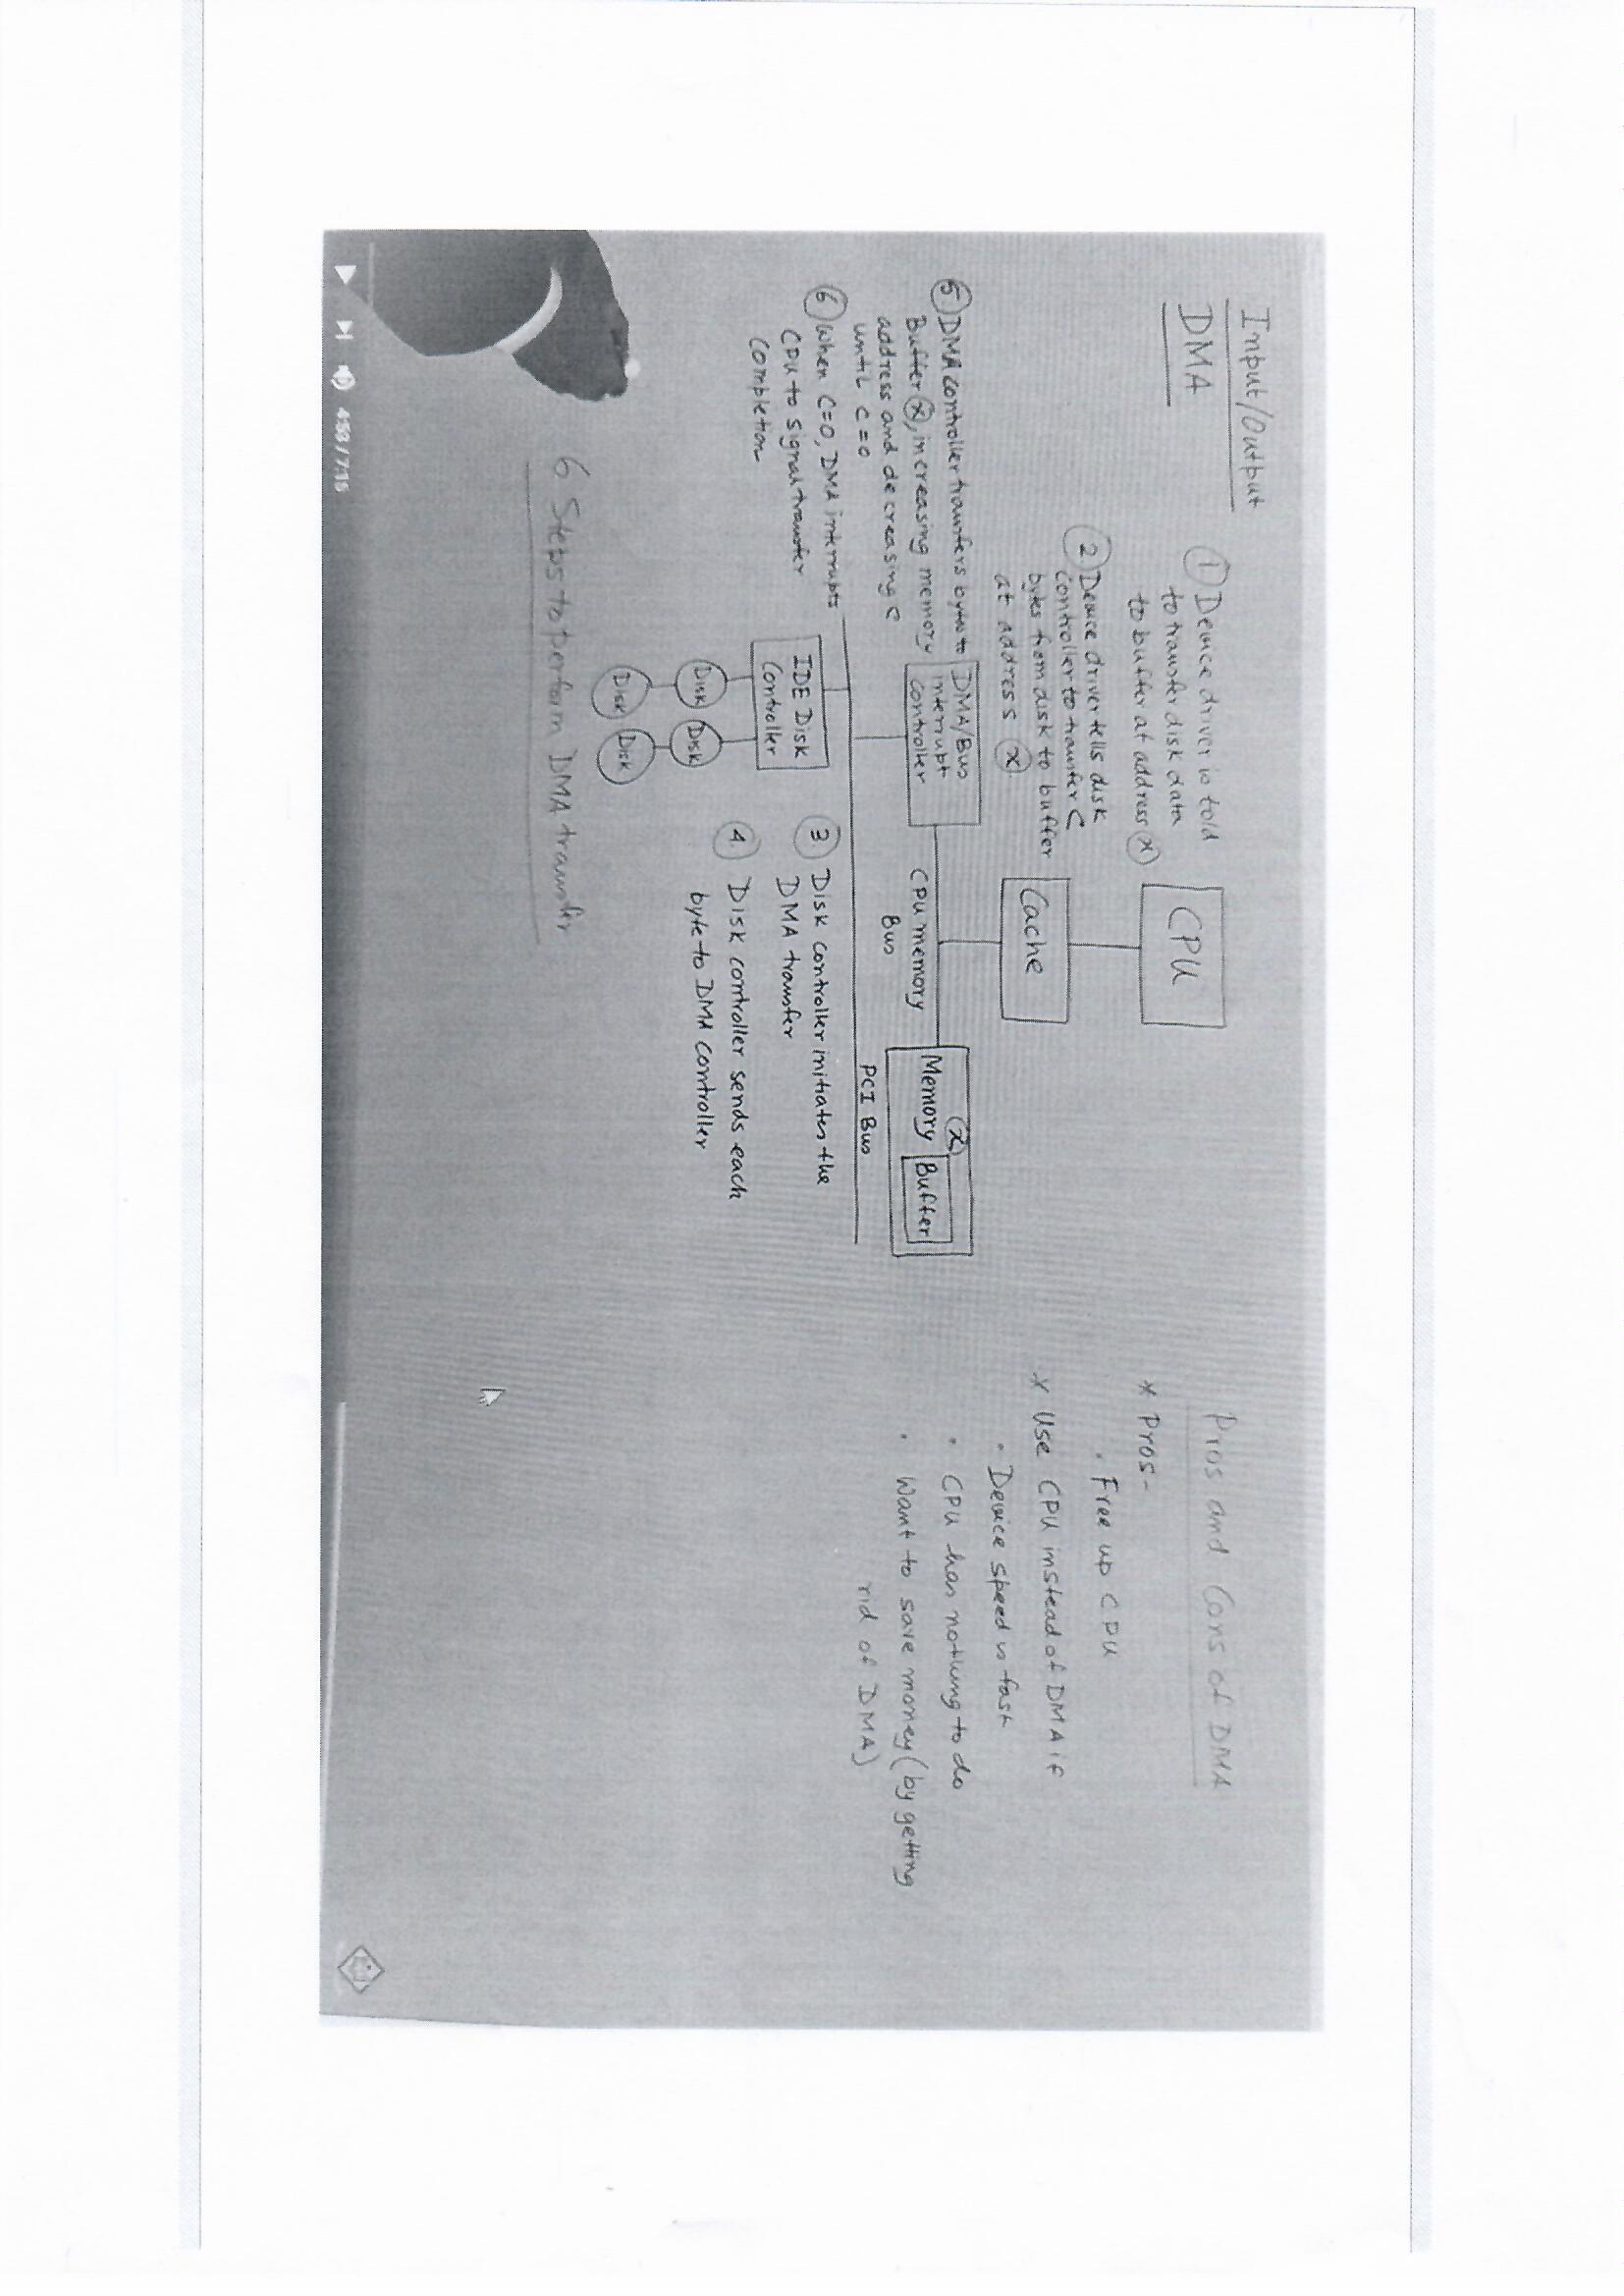 Input/Output
DMA
1 Device driver is told
to transfer disk data
to buffer at address x
2 Device driver tells disk
controller to transfer C
bytes from disk to buffer
at address x
CPU
Cache
5 DMA controller transfers bytes to
Buffer x, increasing memory
address and decreasing C
until C=0
6 When C=0, DMA interrupts
CPU to signal transfer
completion
DMA/Bus
interrupt
controller
CPU memory
Bus
x
Memory
Buffer
PCI Bus
IDE Disk
Controller
3. Disk controller initiates the
DMA transfer
4. Disk controller sends each
byte to DMA controller
Disk Disk
Disk Disk
6 Steps to perform DMA transfer
Pros and Cons of DMA
* Pros-
• Free up CPU
* Use CPU instead of DMA if
• Device speed is fast
• CPU has nothing to do
• Want to save money (by getting
rid of DMA)
4:53 / 7:15